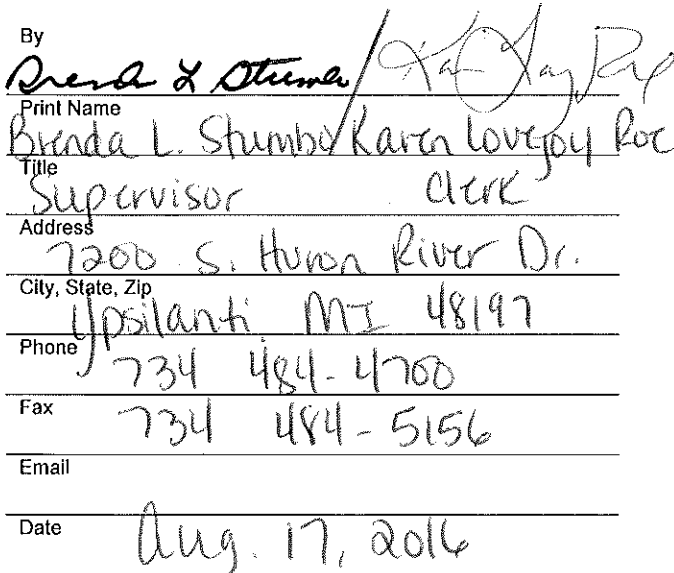 By
Brenda L Stumbo / Karen Lovejoy Roe
Print Name
Brenda L. Stumbo/Karen Lovejoy Roe
Title
Supervisor Clerk
Address
7200 S. Huron River Dr.
City, State, Zip
Ypsilanti MI 48197
Phone
734 484-4700
Fax
734 484-5156
Email
Date
Aug. 17, 2016